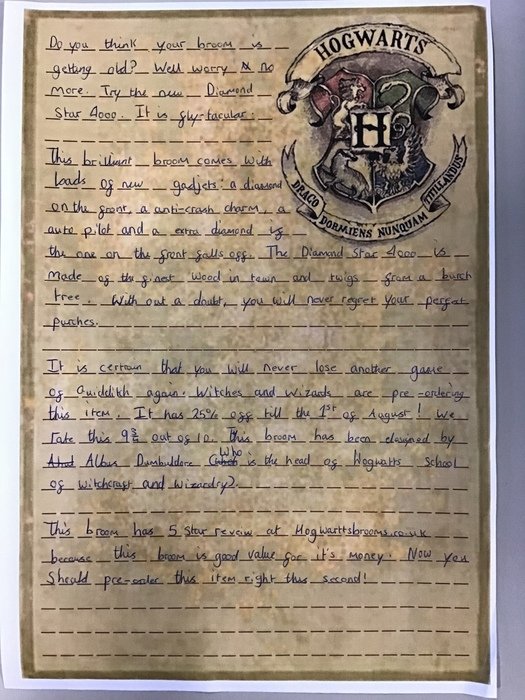 HOGWARTS
H
DRACO DORMIENS NUNQUAM TITILLANDUS
Do you think your broom is
getting old? Well worry no
more. Try the new Diamond
Star 4000. It is fly-tacular.
This brilliant broom comes with
loads of new gadjets: a diamond
on the front, a anti-crash charm, a
auto pilot and a extra diamond if
the one on the front falls off. The Diamond Star 4000 is
made of the finest wood in town and twigs from a burch
tree. With out a doubt, you will never regret your perfect
purches.
It is certain that you will never lose another game
of Quidditch again. Witches and wizards are pre-ordering
this item. It has 25% off till the 1st of August! We
rate this 9 out of 10. This broom has been designed by
Albus Dumbuldore (Who is the head of Hogwatts School
of witchcraft and wizardry).
This broom has 5 star review at Hogwarttsbrooms.co.uk
because this broom is good value for it's money. Now you
Should pre-order this item right this second!